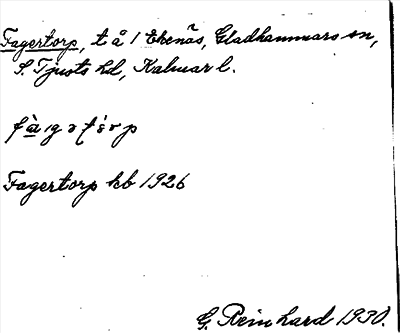 Fagertorp, t å 1 Ekenäs, Gladhammars sn,
S. Tjusts hd, Kalmar l.
Fagertorp kb 1926
G. Reinhard 1930.